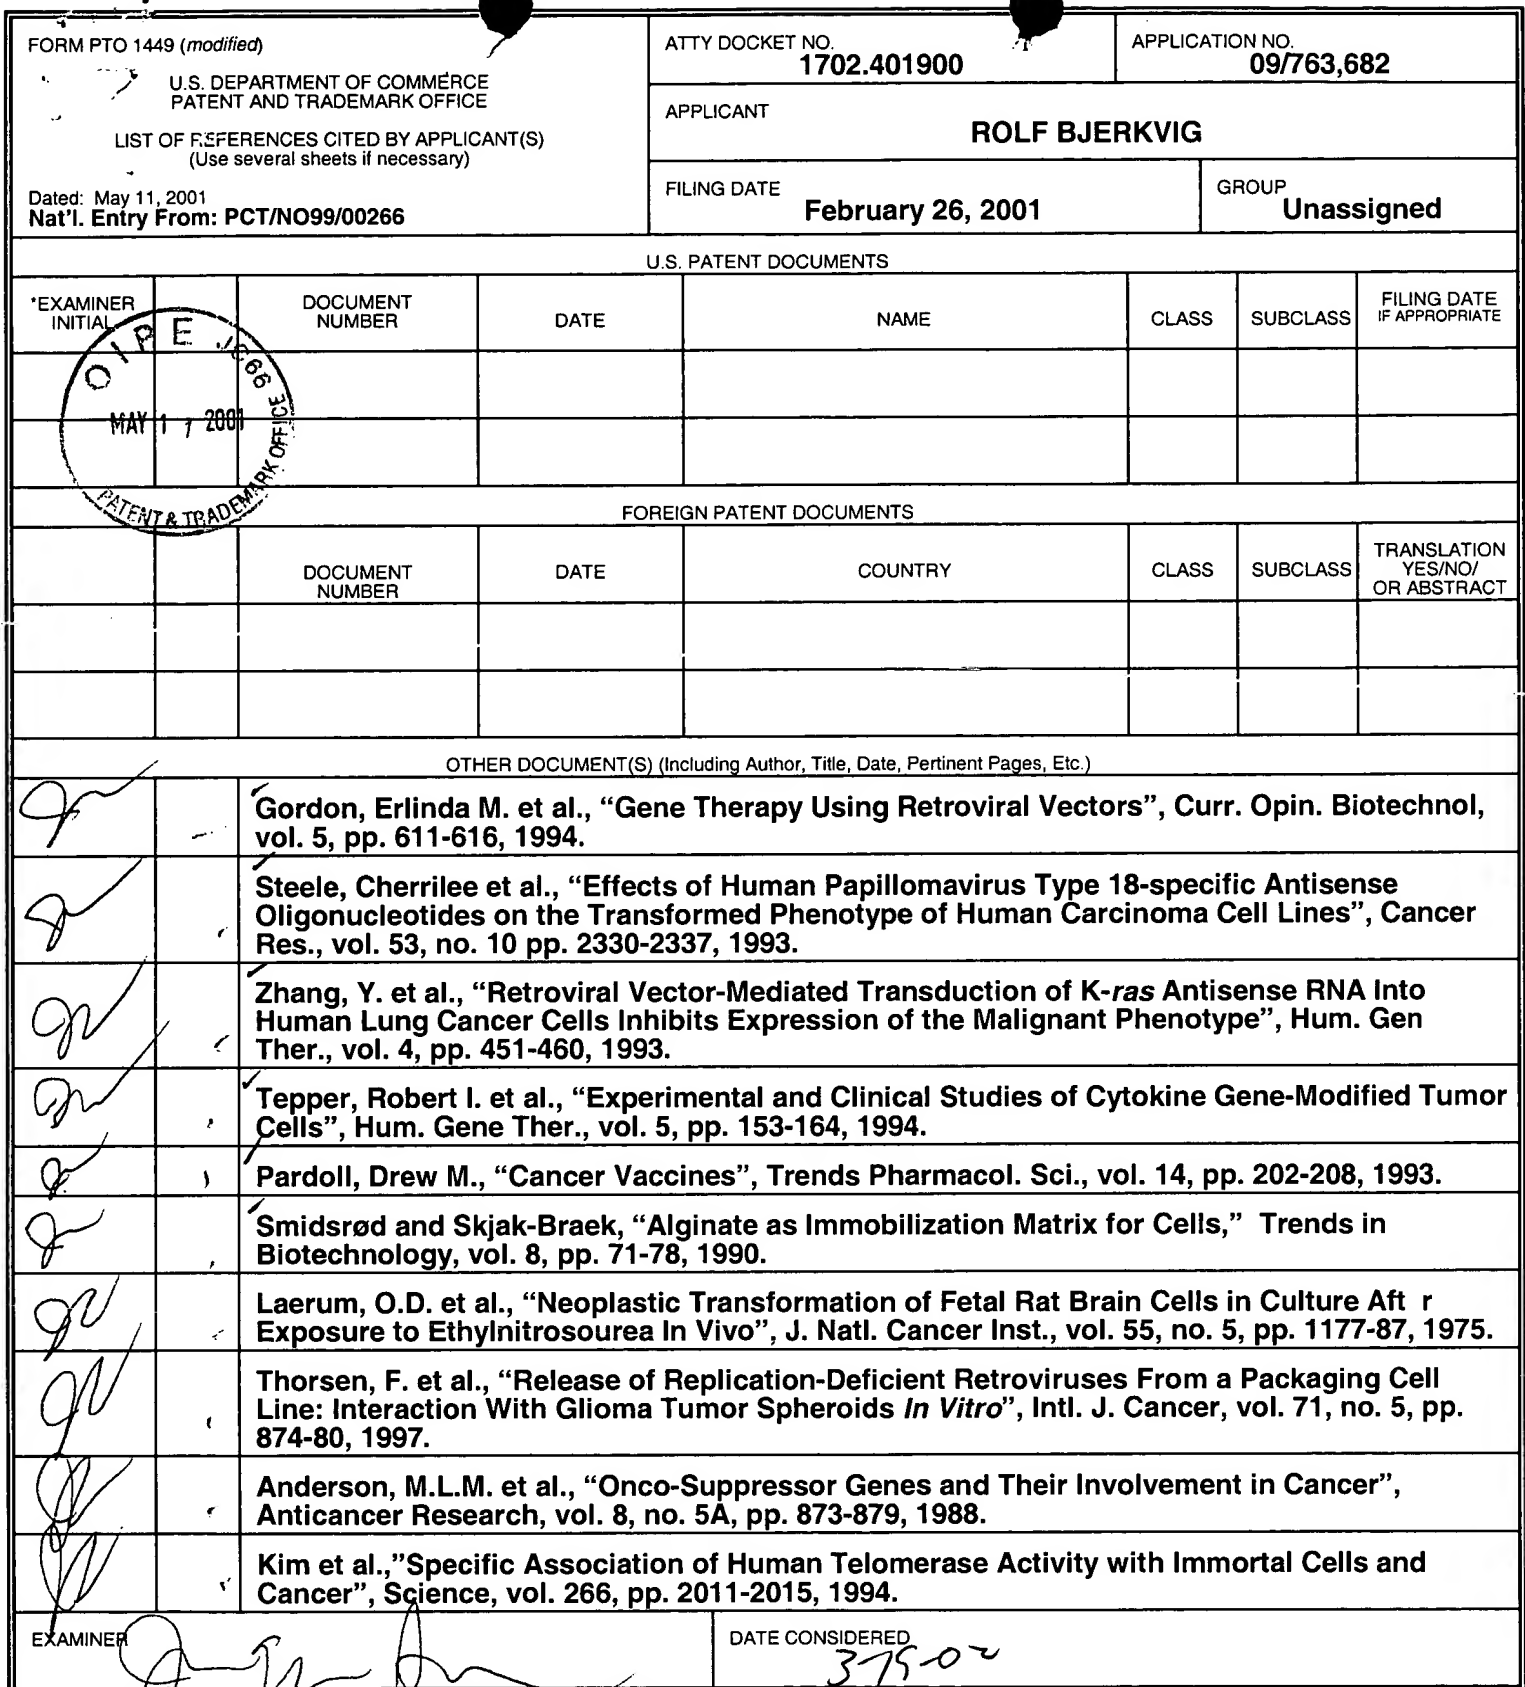 FORM PTO 1449 (modified)
U.S. DEPARTMENT OF COMMERCE
PATENT AND TRADEMARK OFFICE
LIST OF REFERENCES CITED BY APPLICANT(S)
(Use several sheets if necessary)
Dated: May 11, 2001
Nat'l. Entry From: PCT/NO99/00266
ATTY DOCKET NO.
1702.401900
APPLICATION NO.
09/763,682
APPLICANT
ROLF BJERKVIG
FILING DATE
February 26, 2001
GROUP
Unassigned
U.S. PATENT DOCUMENTS
*EXAMINER
INITIAL
DOCUMENT
NUMBER
DATE
NAME
CLASS
SUBCLASS
FILING DATE
IF APPROPRIATE
OIPE
MAY 17 2001
PATENT & TRADEMARK OFFICE
FOREIGN PATENT DOCUMENTS
DOCUMENT
NUMBER
DATE
COUNTRY
CLASS
SUBCLASS
TRANSLATION
YES/NO/
OR ABSTRACT
OTHER DOCUMENT(S) (Including Author, Title, Date, Pertinent Pages, Etc.)
Gordon, Erlinda M. et al., “Gene Therapy Using Retroviral Vectors”, Curr. Opin. Biotechnol,
vol. 5, pp. 611-616, 1994.
Steele, Cherrilee et al., “Effects of Human Papillomavirus Type 18-specific Antisense
Oligonucleotides on the Transformed Phenotype of Human Carcinoma Cell Lines”, Cancer
Res., vol. 53, no. 10 pp. 2330-2337, 1993.
Zhang, Y. et al., “Retroviral Vector-Mediated Transduction of K-ras Antisense RNA Into
Human Lung Cancer Cells Inhibits Expression of the Malignant Phenotype”, Hum. Gen
Ther., vol. 4, pp. 451-460, 1993.
Tepper, Robert I. et al., “Experimental and Clinical Studies of Cytokine Gene-Modified Tumor
Cells”, Hum. Gene Ther., vol. 5, pp. 153-164, 1994.
Pardoll, Drew M., “Cancer Vaccines”, Trends Pharmacol. Sci., vol. 14, pp. 202-208, 1993.
Smidsrød and Skjak-Braek, “Alginate as Immobilization Matrix for Cells,” Trends in
Biotechnology, vol. 8, pp. 71-78, 1990.
Laerum, O.D. et al., “Neoplastic Transformation of Fetal Rat Brain Cells in Culture Aft r
Exposure to Ethylnitrosourea In Vivo”, J. Natl. Cancer Inst., vol. 55, no. 5, pp. 1177-87, 1975.
Thorsen, F. et al., “Release of Replication-Deficient Retroviruses From a Packaging Cell
Line: Interaction With Glioma Tumor Spheroids In Vitro”, Intl. J. Cancer, vol. 71, no. 5, pp.
874-80, 1997.
Anderson, M.L.M. et al., “Onco-Suppressor Genes and Their Involvement in Cancer”,
Anticancer Research, vol. 8, no. 5A, pp. 873-879, 1988.
Kim et al.,”Specific Association of Human Telomerase Activity with Immortal Cells and
Cancer”, Science, vol. 266, pp. 2011-2015, 1994.
EXAMINER
DATE CONSIDERED